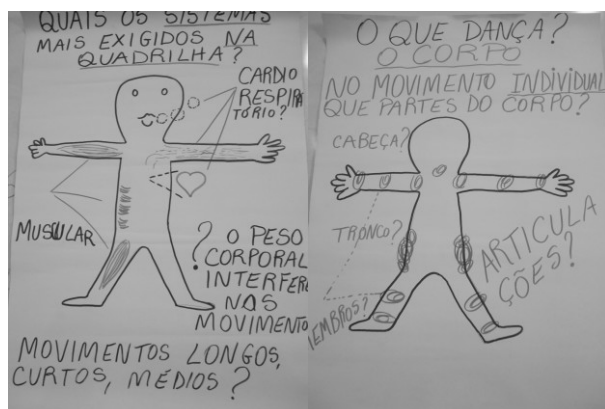 QUAIS OS SISTEMAS
MAIS EXIGIDOS NA
QUADRILHA?
CARDIO
RESPIRA
TÓRIO?
MUSCULAR
? O PESO
CORPORAL
INTERFERE
NOS
MOVIMENTO
MOVIMENTOS LONGOS,
CURTOS, MÉDIOS?
O QUE DANÇA?
O CORPO
NO MOVIMENTO INDIVIDUAL
QUE PARTES DO CORPO?
CABEÇA?
TRONCO?
MEMBROS?
ARTICULA
ÇÕES?